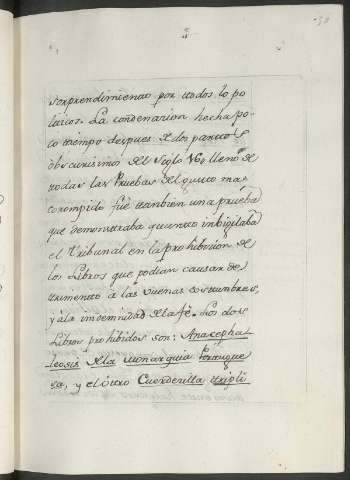 sorprendimiento por todos lo po
liticos. La condenacion hecha po-
co tiempo despues de dos partos
obscurisimos del Siglo 16, lleno de
todas las Pruebas del gusto mas
corompido fuè tambien una prueba
que demonstraba quanto inbigilaba
el Tribunal en la prohibicion de
los Libros que podian causar de
trimento à las buenas costumbres,
y à la indemnidad de la fè. Los dos
Libros prohibidos son: Anacepha
leosis de la monarquia Portugue
sa, y el òtro Cuerdecilla tripli